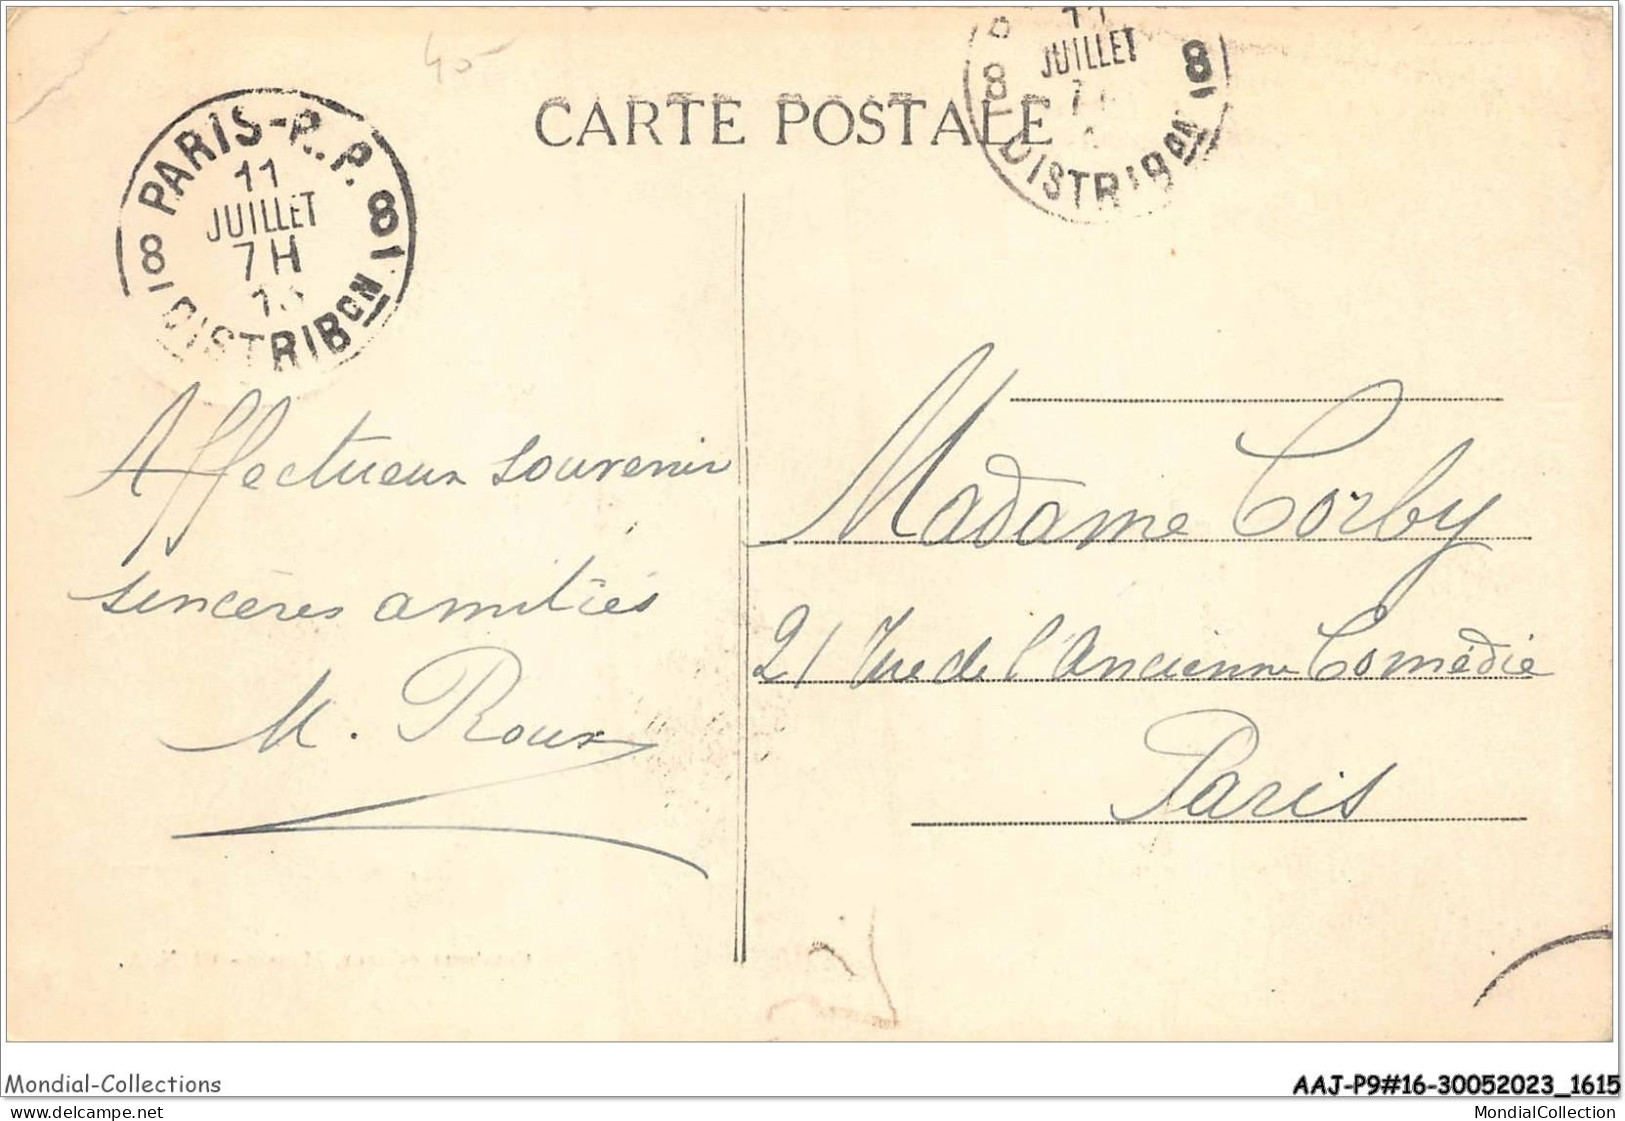 45
CARTE POSTALE
PARIS-R.P.
11
JUILLET
7H
8 8
DISTRIBON
11
JUILLET
8 8
DISTRIBON
Affectueux souvenir
sincères amitiés
M. Roux
Madame Corby
21 Rue de l'Ancienne Comédie
Paris
Mondial-Collections
AAJ-P9#16-30052023_1615
picclick.fr
MondialCollection